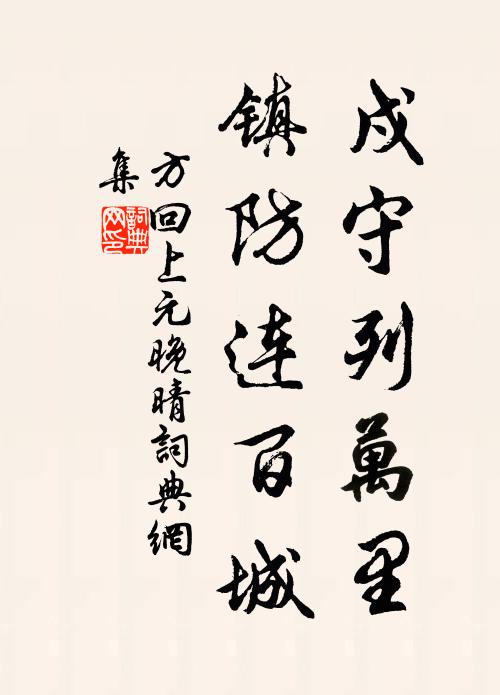 戍守列萬里
镇防连百城
方回上元晚晴詞典網
集
詞典
网印